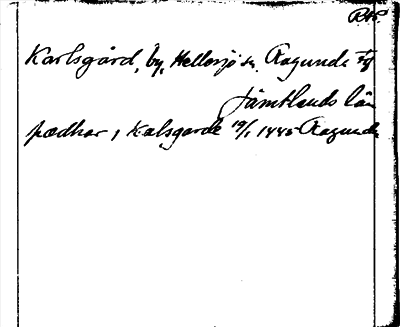 RAP
Karlsgård, by, Hellesjö sn. Ragunda tg
Jämtlands län
pædhar j Kalsgarde 19/1 1445 Ragunda